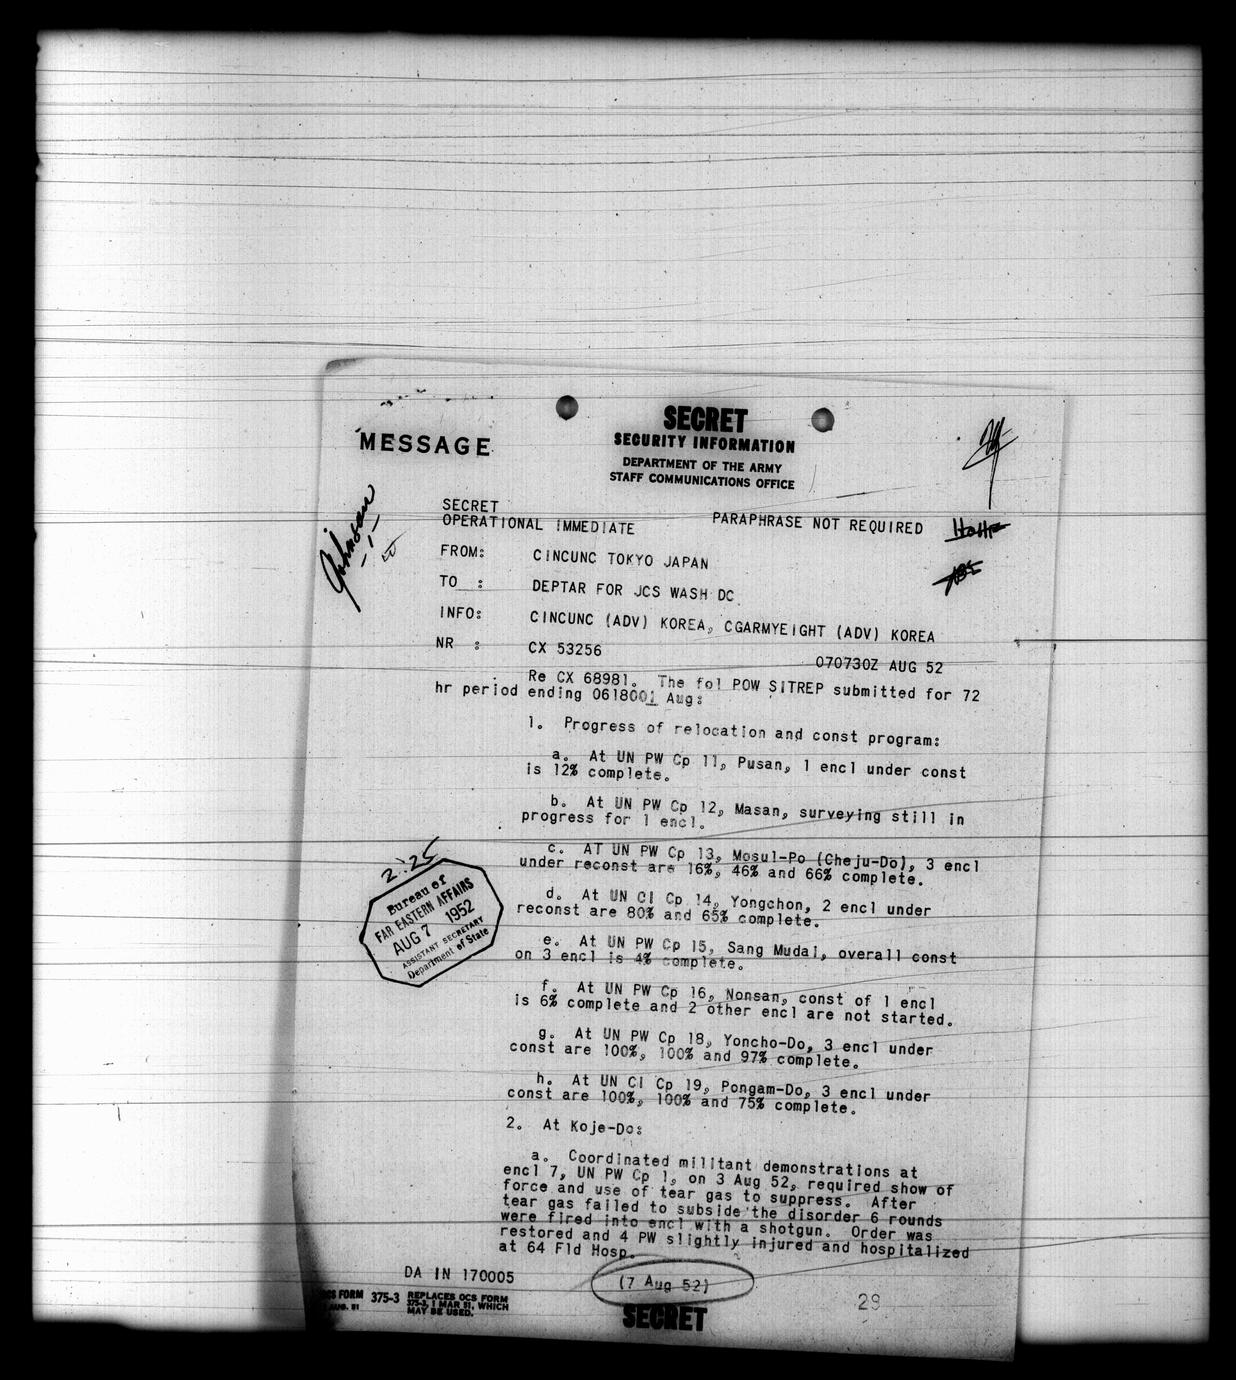 SECRET
SECURITY INFORMATION
MESSAGE
DEPARTMENT OF THE ARMY
STAFF COMMUNICATIONS OFFICE
SECRET
OPERATIONAL IMMEDIATE PARAPHRASE NOT REQUIRED
Johnson
FROM: CINCUNC TOKYO JAPAN
TO : DEPTAR FOR JCS WASH DC
INFO: CINCUNC (ADV) KOREA, CGARMYEIGHT (ADV) KOREA
NR : CX 53256 070730Z AUG 52
Re CX 68981. The fol POW SITREP submitted for 72
hr period ending 061800I Aug:
1. Progress of relocation and const program:
a. At UN PW Cp 11, Pusan, 1 encl under const
is 12% complete.
b. At UN PW Cp 12, Masan, surveying still in
progress for 1 encl.
c. AT UN PW Cp 13, Mosul-Po (Cheju-Do), 3 encl
under reconst are 16%, 46% and 66% complete.
d. At UN CI Cp 14, Yongchon, 2 encl under
reconst are 80% and 65% complete.
e. At UN PW Cp 15, Sang Mudai, overall const
on 3 encl is 4% complete.
f. At UN PW Cp 16, Nonsan, const of 1 encl
is 6% complete and 2 other encl are not started.
g. At UN PW Cp 18, Yoncho-Do, 3 encl under
const are 100%, 100% and 97% complete.
h. At UN CI Cp 19, Pongam-Do, 3 encl under
const are 100%, 100% and 75% complete.
2:25
Bureau of
FAR EASTERN AFFAIRS
AUG 7 1952
ASSISTANT SECRETARY
Department of State
2. At Koje-Do:
a. Coordinated militant demonstrations at
encl 7, UN PW Cp 1, on 3 Aug 52, required show of
force and use of tear gas to suppress. After
tear gas failed to subside the disorder 6 rounds
were fired into encl with a shotgun. Order was
restored and 4 PW slightly injured and hospitalized
at 64 Fld Hosp.
DA IN 170005 (7 Aug 52)
OCS FORM 375-3 REPLACES OCS FORM
375-3, 1 MAR 51, WHICH
MAY BE USED.
AUG. 51
29
SECRET